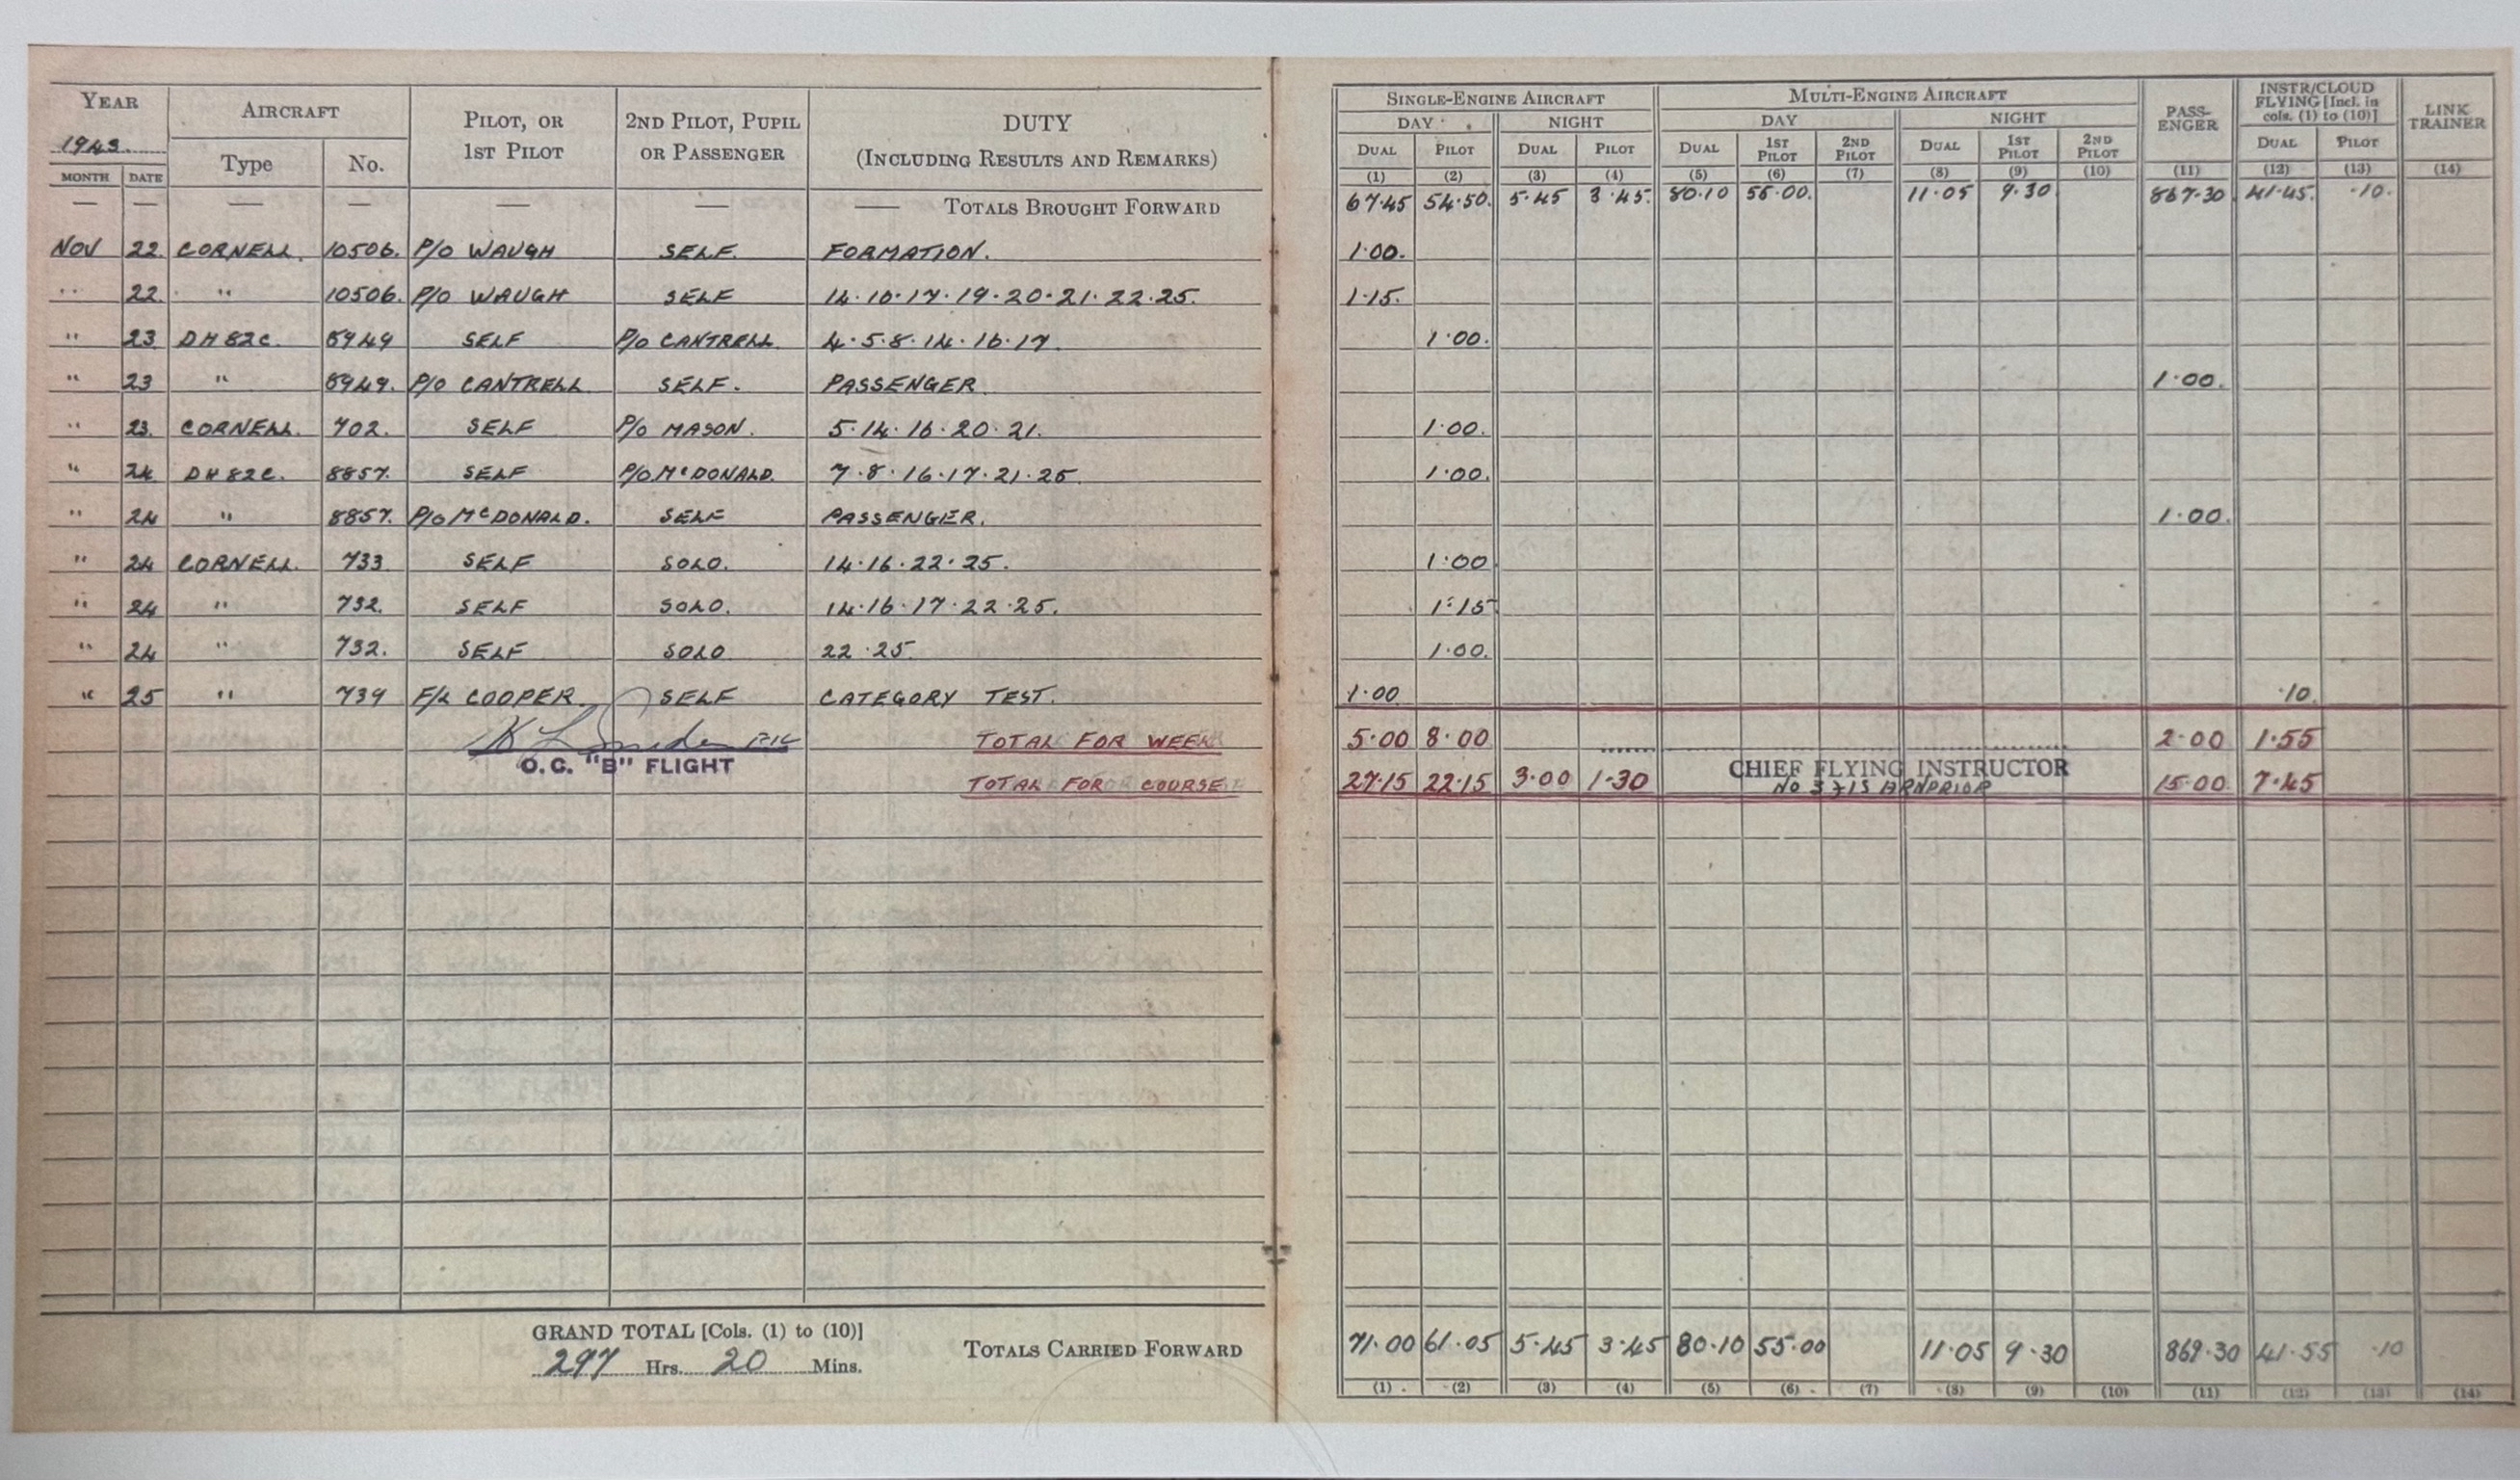 YEAR AIRCRAFT PILOT, OR 1ST PILOT 2ND PILOT, PUPIL OR PASSENGER DUTY (INCLUDING RESULTS AND REMARKS) SINGLE-ENGINE AIRCRAFT MULTI-ENGINE AIRCRAFT PASS-ENGER INSTR/CLOUD FLYING [Incl. in cols. (1) to (10)] LINK TRAINER
1943. DAY NIGHT DAY NIGHT
MONTH DATE Type No. DUAL PILOT DUAL PILOT DUAL 1ST PILOT 2ND PILOT DUAL 1ST PILOT 2ND PILOT DUAL PILOT
(1) (2) (3) (4) (5) (6) (7) (8) (9) (10) (11) (12) (13) (14)
— — — — — — — TOTALS BROUGHT FORWARD 67.45 54.50. 5.45 3.45. 80.10 55.00. 11.05 9.30 867.30 41.45. .10.
NOV 22. CORNELL. 10506. P/O WAUGH SELF. FORMATION. 1.00.
" 22. " 10506. P/O WAUGH SELF 14.16.17.19.20.21.22.25. 1.15.
" 23 DH82C. 8949 SELF P/O CANTRELL 4.5.8.14.16.17. 1.00.
" 23 " 8949. P/O CANTRELL SELF. PASSENGER. 1.00.
" 23. CORNELL. 702. SELF P/O MASON. 5.14.16.20.21. 1.00.
" 24 DH82C. 8857. SELF P/O McDONALD. 7.8.16.17.21.25. 1.00.
" 24 " 8857. P/O McDONALD. SELF PASSENGER. 1.00.
" 24 CORNELL. 733 SELF SOLO. 14.16.22.25. 1.00
" 24 " 732. SELF SOLO. 14.16.17.22.25. 1.15
" 24 " 732. SELF SOLO 22.25. 1.00.
" 25 " 739 F/L COOPER. SELF CATEGORY TEST. 1.00 .10.
TOTAL FOR WEEK 5.00 8.00 2.00 1.55
O.C. "B" FLIGHT
TOTAL FOR COURSE 27.15 22.15 3.00 1.30 CHIEF FLYING INSTRUCTOR 15.00 7.45
No 3 FIS ARNPRIOR
GRAND TOTAL [Cols. (1) to (10)]
297 Hrs. 20 Mins.
TOTALS CARRIED FORWARD 71.00 61.05 5.45 3.45 80.10 55.00 11.05 9.30 869.30 41.55 .10
(1) (2) (3) (4) (5) (6) (7) (8) (9) (10) (11) (12) (13) (14)